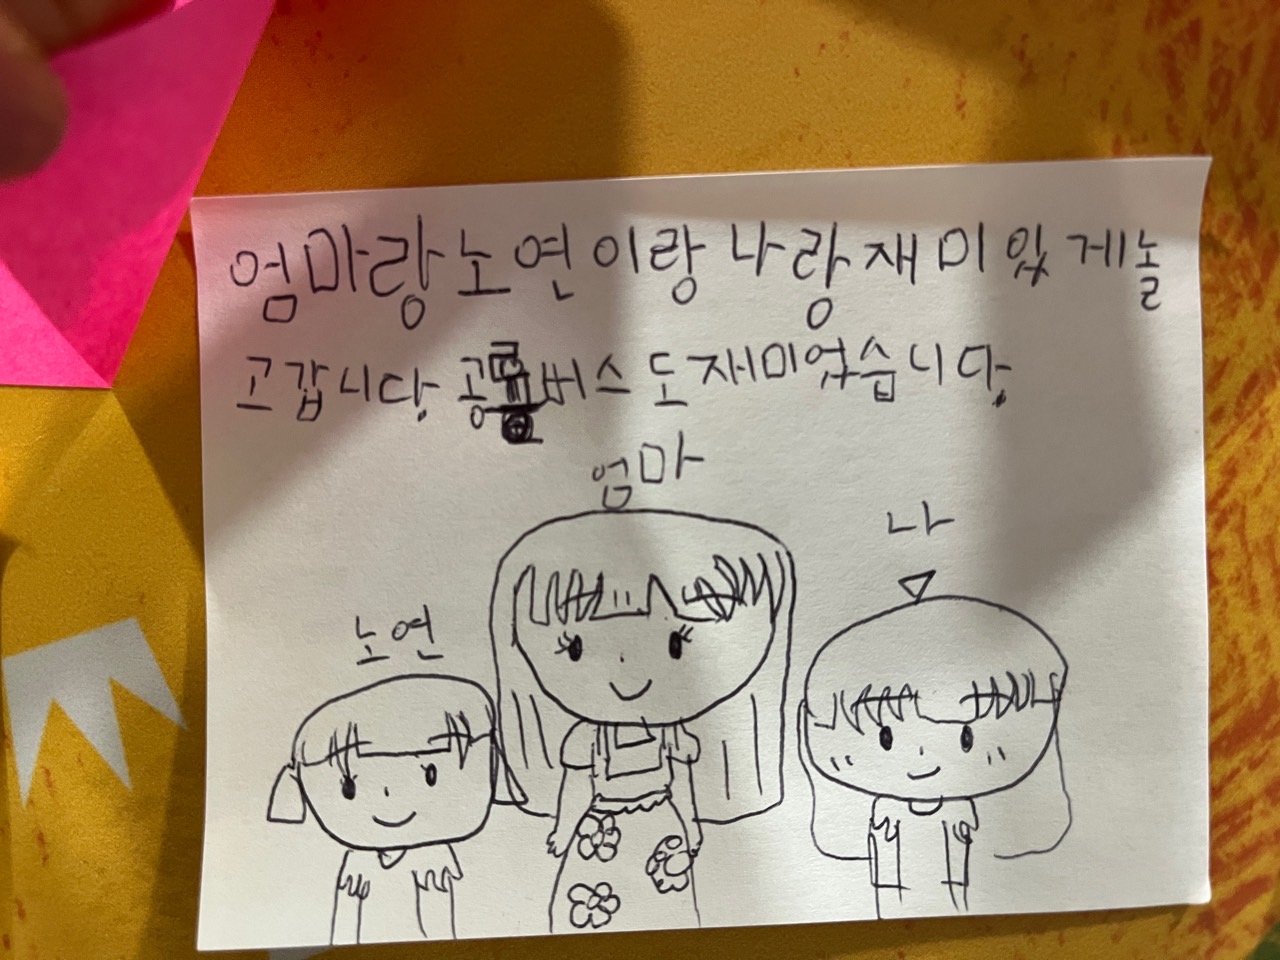 엄마랑노연이랑 나랑재미있게놀
고갑니다. 공룡버스도재미었습니다.
엄마
나
노연